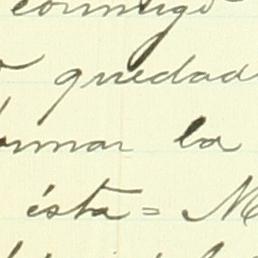 conmigo
quedad
ormar la
ésta = M